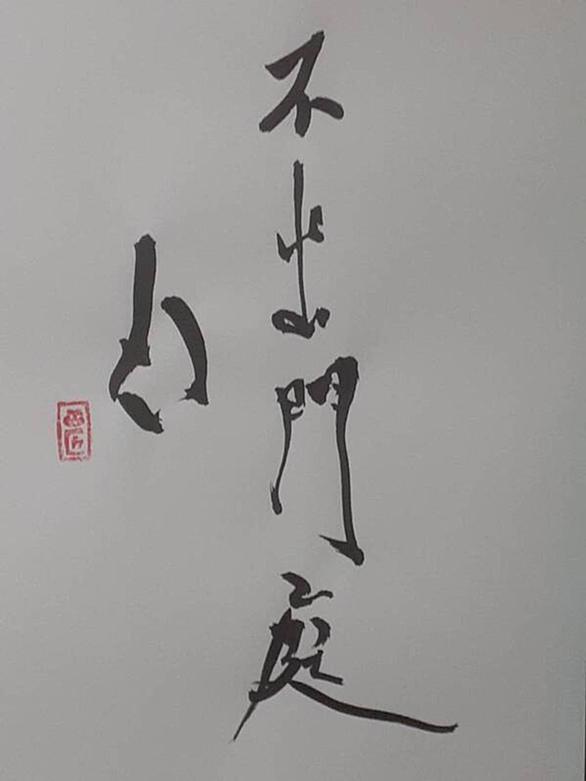 不出門庭